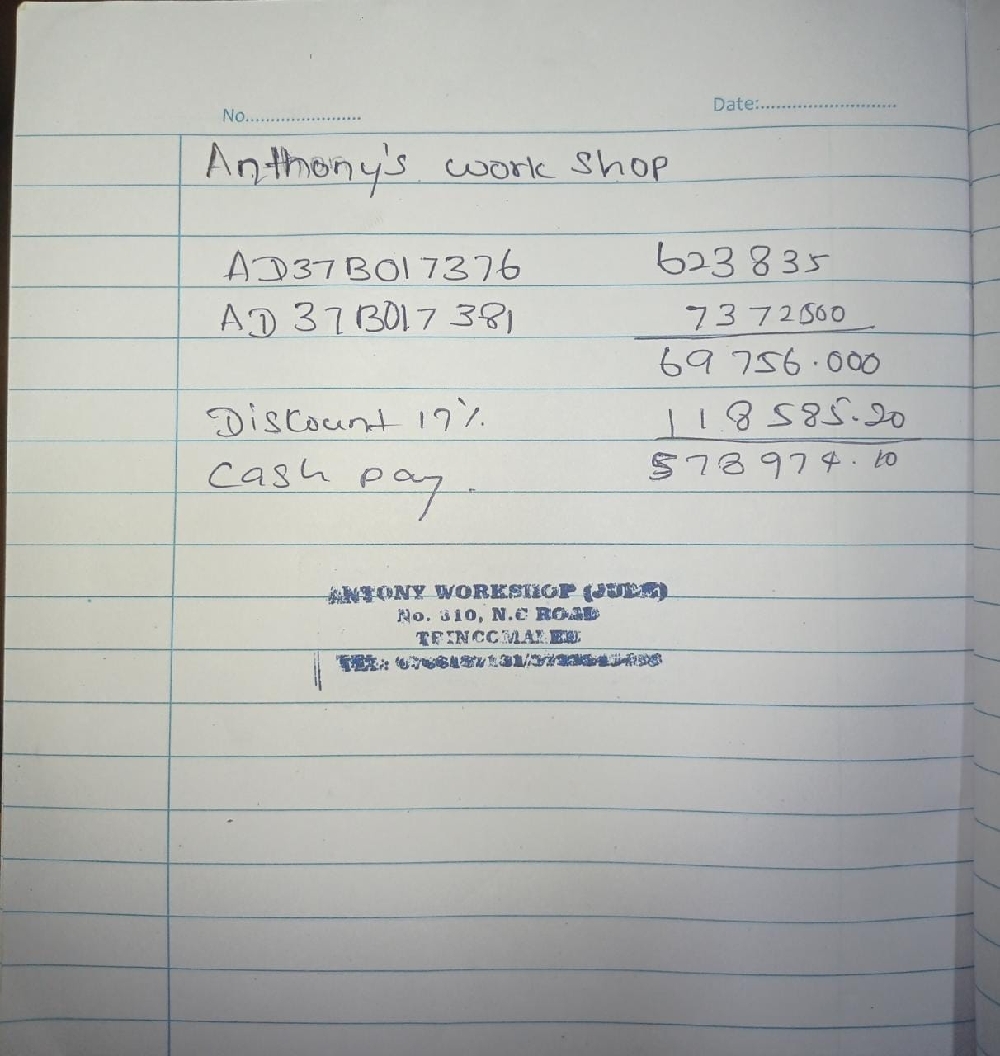 No........................
Date:............................
Anthony's work shop
AD37B017376 623835
AD 37B017 381 7372500
69 756.000
Discount 17% 118585.20
Cash pay. 578974.10
ANTONY WORKSHOP (JUDE)
No. 310, N.C ROAD
TRINCOMALEE
TEL: